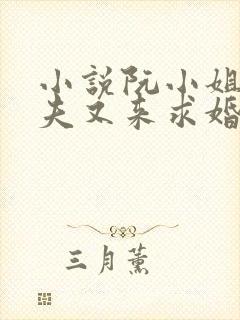 小說阮小姐
夫又来求婚
三月薰